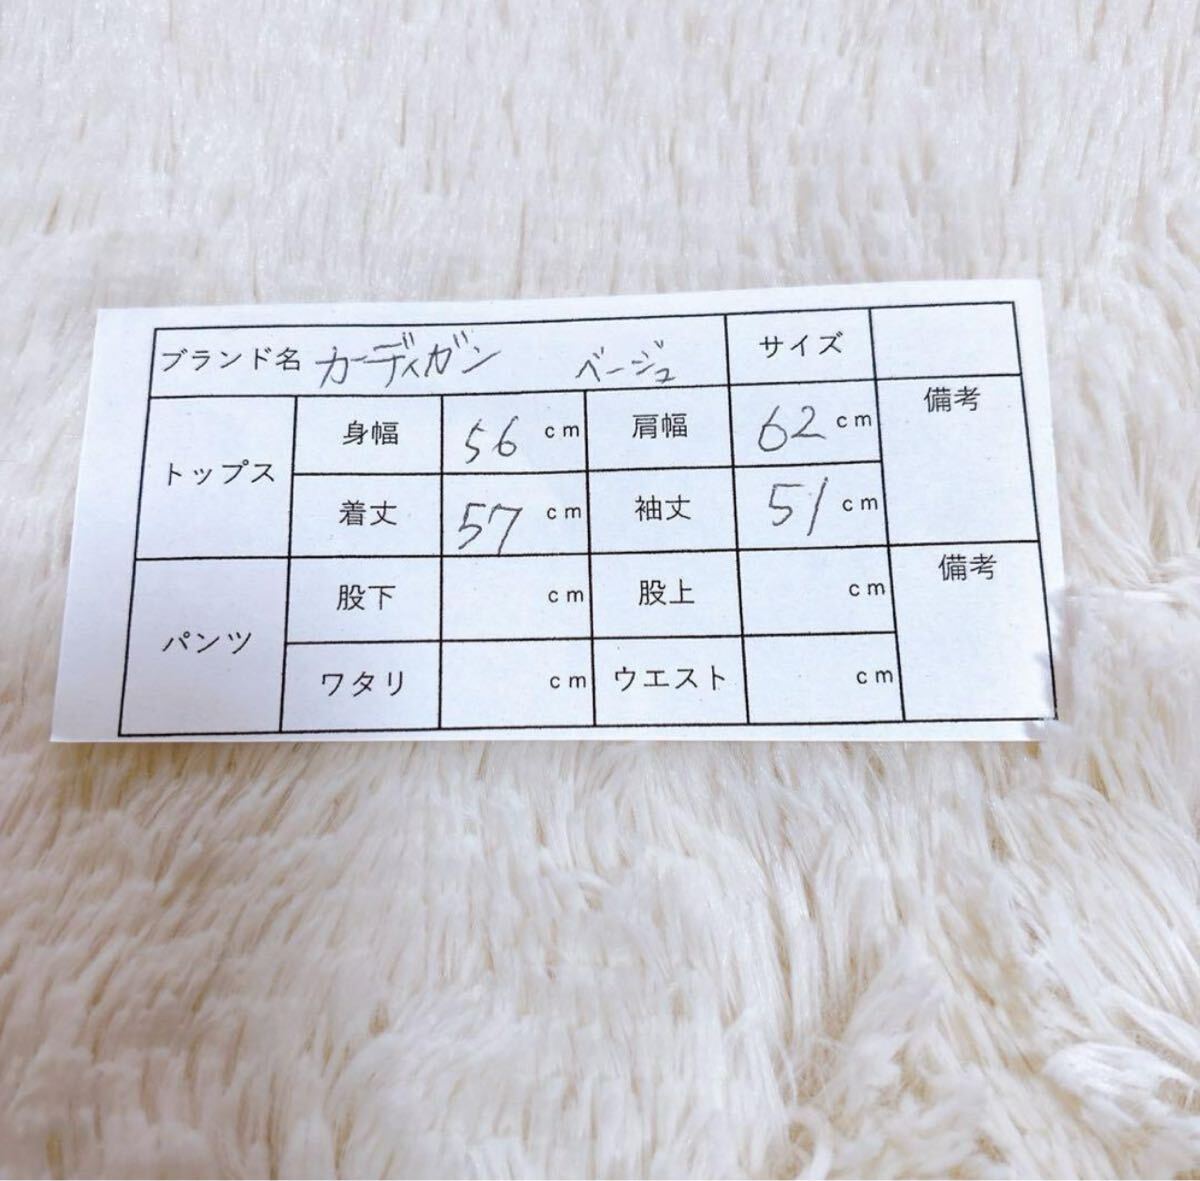 ブランド名 カーディガン ベージュ サイズ
トップス 身幅 56 cm 肩幅 62 cm 備考
着丈 57 cm 袖丈 51 cm
パンツ 股下 cm 股上 cm 備考
ワタリ cm ウエスト cm